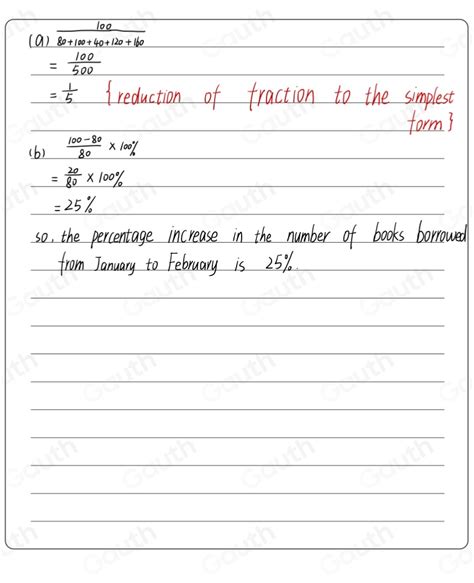 (a) 100/(80+100+40+120+160)
= 100/500
= 1/5 {reduction of fraction to the simplest
form}
(b) (100-80)/80 × 100%
= 20/80 × 100%
= 25%
so, the percentage increase in the number of books borrowed
from January to February is 25%.